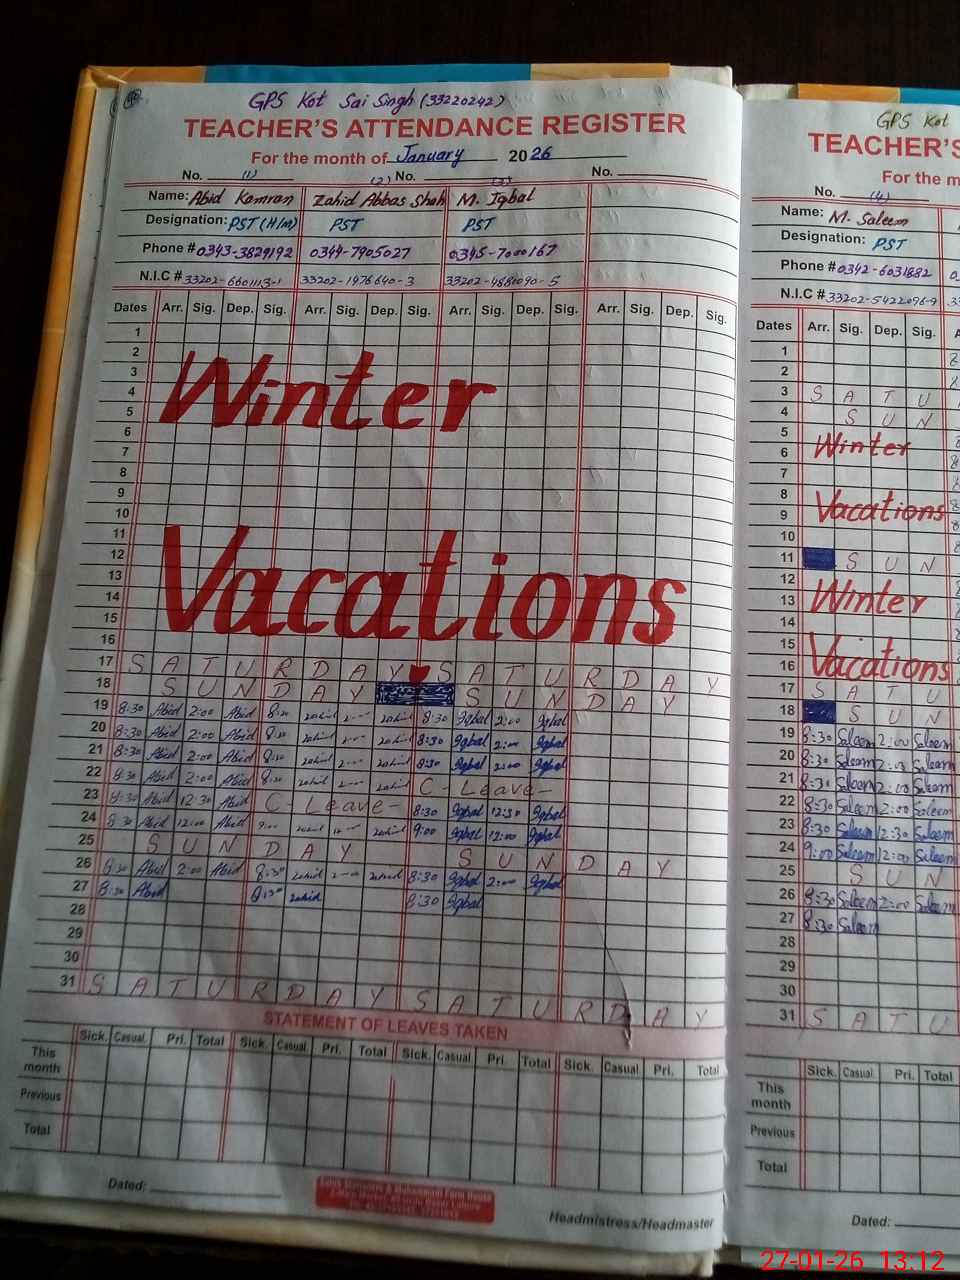 GPS Kot Sai Singh (33220242)
TEACHER'S ATTENDANCE REGISTER
For the month of January 2026
No. (1) (2) No. (3) No.
Name: Abid Kamran Zahid Abbas Shah M. Iqbal
Designation: PST (H/M) PST PST
Phone # 0343-3829192 0344-7905027 0345-7000167
N.I.C # 33202-6601113-1 33202-1976640-3 33202-4880090-5
Dates Arr. Sig. Dep. Sig. Arr. Sig. Dep. Sig. Arr. Sig. Dep. Sig. Arr. Sig. Dep. Sig.
1
2
3
Winter
4
5
6
7
8
9
10
11
12
13
Vacations
14
15
16
17 SATURDAY SATURDAY
18 SUNDAY SUNDAY
19 8:30 Abid 2:00 Abid 8:30 zahid 2:00 zahid 8:30 Iqbal 2:00 Iqbal
20 8:30 Abid 2:00 Abid 8:30 zahid 2:00 zahid 8:30 Iqbal 2:00 Iqbal
21 8:30 Abid 2:00 Abid 8:30 zahid 2:00 zahid 8:30 Iqbal 2:00 Iqbal
22 8:30 Abid 2:00 Abid 8:30 zahid 2:00 zahid C-Leave-
23 8:30 Abid 12:30 Abid C-Leave- 8:30 Iqbal 12:30 Iqbal
24 8:30 Abid 12:00 Abid 9:00 zahid 12:00 zahid 9:00 Iqbal 12:00 Iqbal
25 SUNDAY SUNDAY
26 8:30 Abid 2:00 Abid 8:30 zahid 2:00 zahid 8:30 Iqbal 2:00 Iqbal
27 8:30 Abid 8:30 zahid 8:30 Iqbal
28
29
30
31 SATURDAY SATURDAY
STATEMENT OF LEAVES TAKEN
Sick. Casual. Pri. Total Sick. Casual. Pri. Total Sick. Casual. Pri. Total Sick. Casual. Pri. Total
This month
Previous
Total
Dated:
Headmistress/Headmaster
GPS Kot
TEACHER'S
For the m
No. (4)
Name: M. Saleem
Designation: PST
Phone # 0342-6031882
N.I.C # 33202-5422096-9
Dates Arr. Sig. Dep. Sig.
1
2
3 SATU
4 SUN
5
6 Winter
7
8
9 Vacations
10
11 SUN
12
13 Winter
14
15
16 Vacations
17 SATU
18 SUN
19 8:30 Saleem 2:00 Saleem
20 8:30 Saleem 2:00 Saleem
21 8:30 Saleem 2:00 Saleem
22 8:30 Saleem 2:00 Saleem
23 8:30 Saleem 12:30 Saleem
24 9:00 Saleem 12:00 Saleem
25 SUN
26 8:30 Saleem 2:00 Saleem
27 8:30 Saleem
28
29
30
31 SATU
Sick. Casual. Pri. Total
This month
Previous
Total
Dated:
27-01-26 13:12